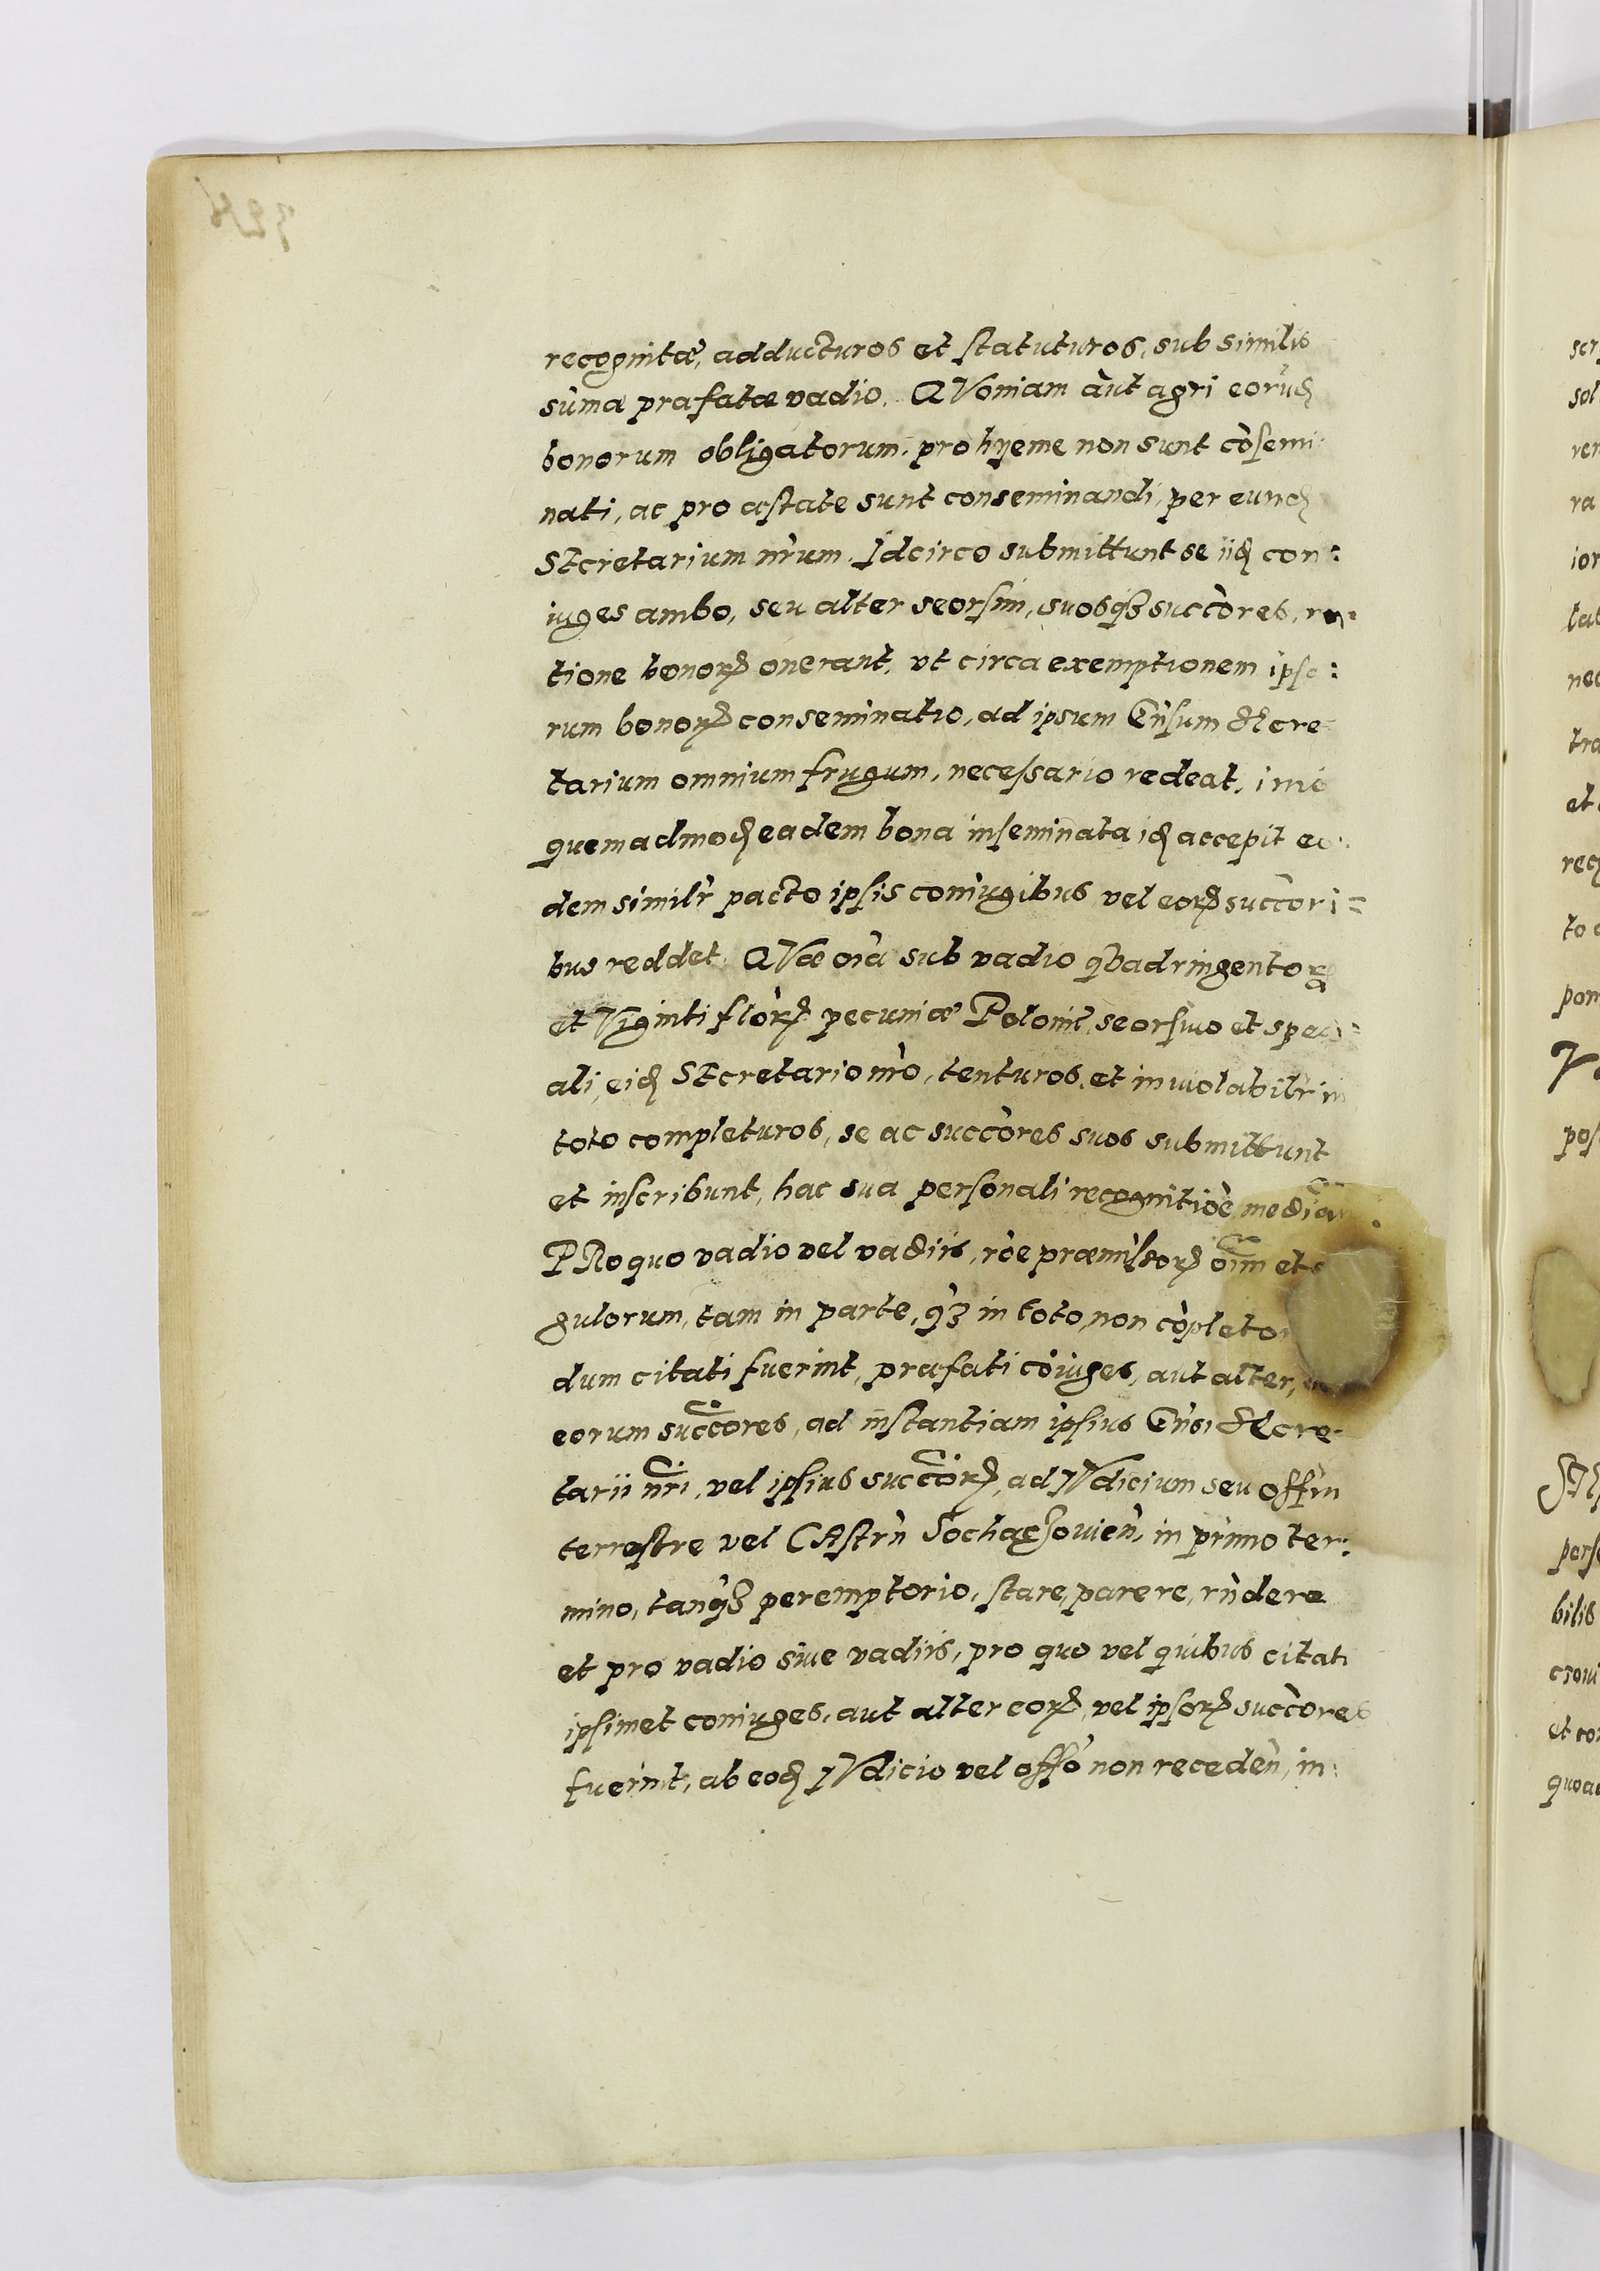 recognitæ, adducturos et statuturos, sub similis
sum̃a præfatæ vadio. QVoniam aũt agri eorũd
bonorum obligatorum, pro hyeme non sunt cõsemi
nati, ac pro æstate sunt conseminandi, per eund
SEcretarium nr̃um. Idcirco submittunt se iid con:
iuges ambo, seu alter seorsim, suosq₃ succõres, ra
tione bonorꝝ onerant, vt circa exemptionem ipso:
rum bonorꝝ conseminatio, ad ipsum Gñsum SEcre
tarium omnium frugum, necessario redeat, imo
quemadmod eadem bona inseminata id accepit eo
dem similr̃ pacto ipsis coniugibus vel eorꝝ succõri=
bus reddet. QVæ oĩa sub vadio qVadringentorꝝ
et Viginti flõrꝝ pecuniæ Poloniẽ, seorsiuo et speci=
ali, eid SEcretario nr̃o, tenturos, et inuiolabilr̃ in
toto completuros, se ac succõres suos submittunt
et inscribunt, hac sua personali recognitiõe median
PRo quo vadio vel vadiis, rõe præmissorꝝ oĩm et
gulorum, tam in parte, q̃₃ in toto non cõpletor
dum citati fuerint, præfati cõiuges, aut alter,
eorum succõres, ad instantiam ipsius Gñsi SEcre
tarii nr̃i, vel ipsius succõrꝝ, ad IVdicium seu Offm̃
terrestre vel CAstrñ Sochaczouień, in primo ter:
mino, tanq̃₃ peremptorio, stare, parere, rñdere
et pro vadio siue vadiis, pro quo vel quibus citati
ipsimet coniuges, aut alter eorꝝ, vel ipsorꝝ succõres
fuerint, ab eod IVdicio vel offõ non recedeñ, in: